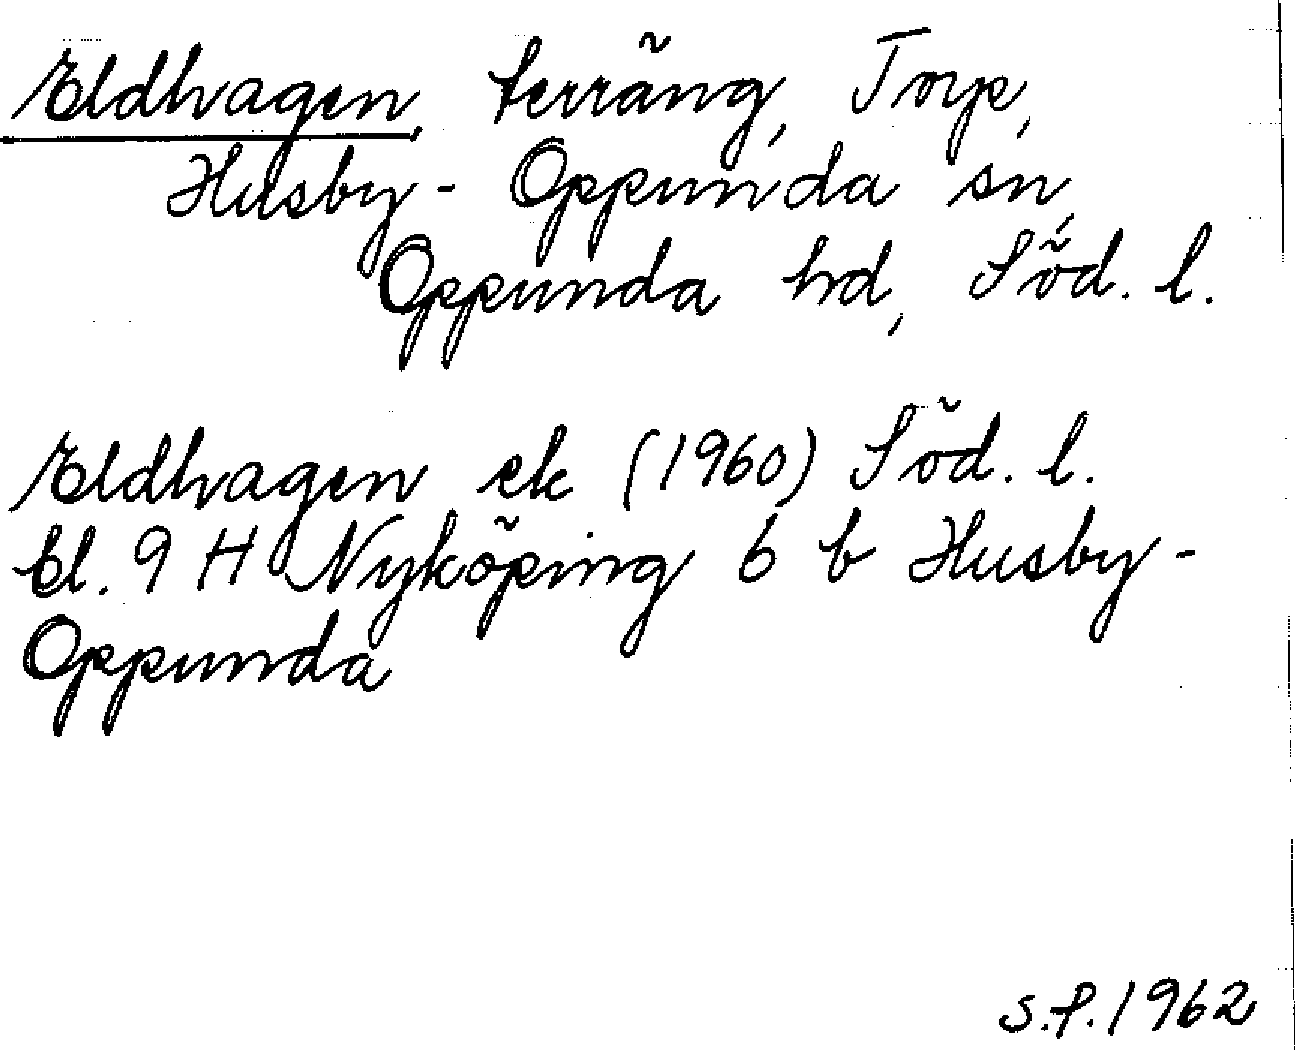 Eldhagen, terräng, Torp,
Husby-Oppunda sn,
Oppunda hd, Söd. l.
Eldhagen ek (1960) Söd. l.
bl. 9 H Nyköping 6 b Husby-
Oppunda
S.f. 1962